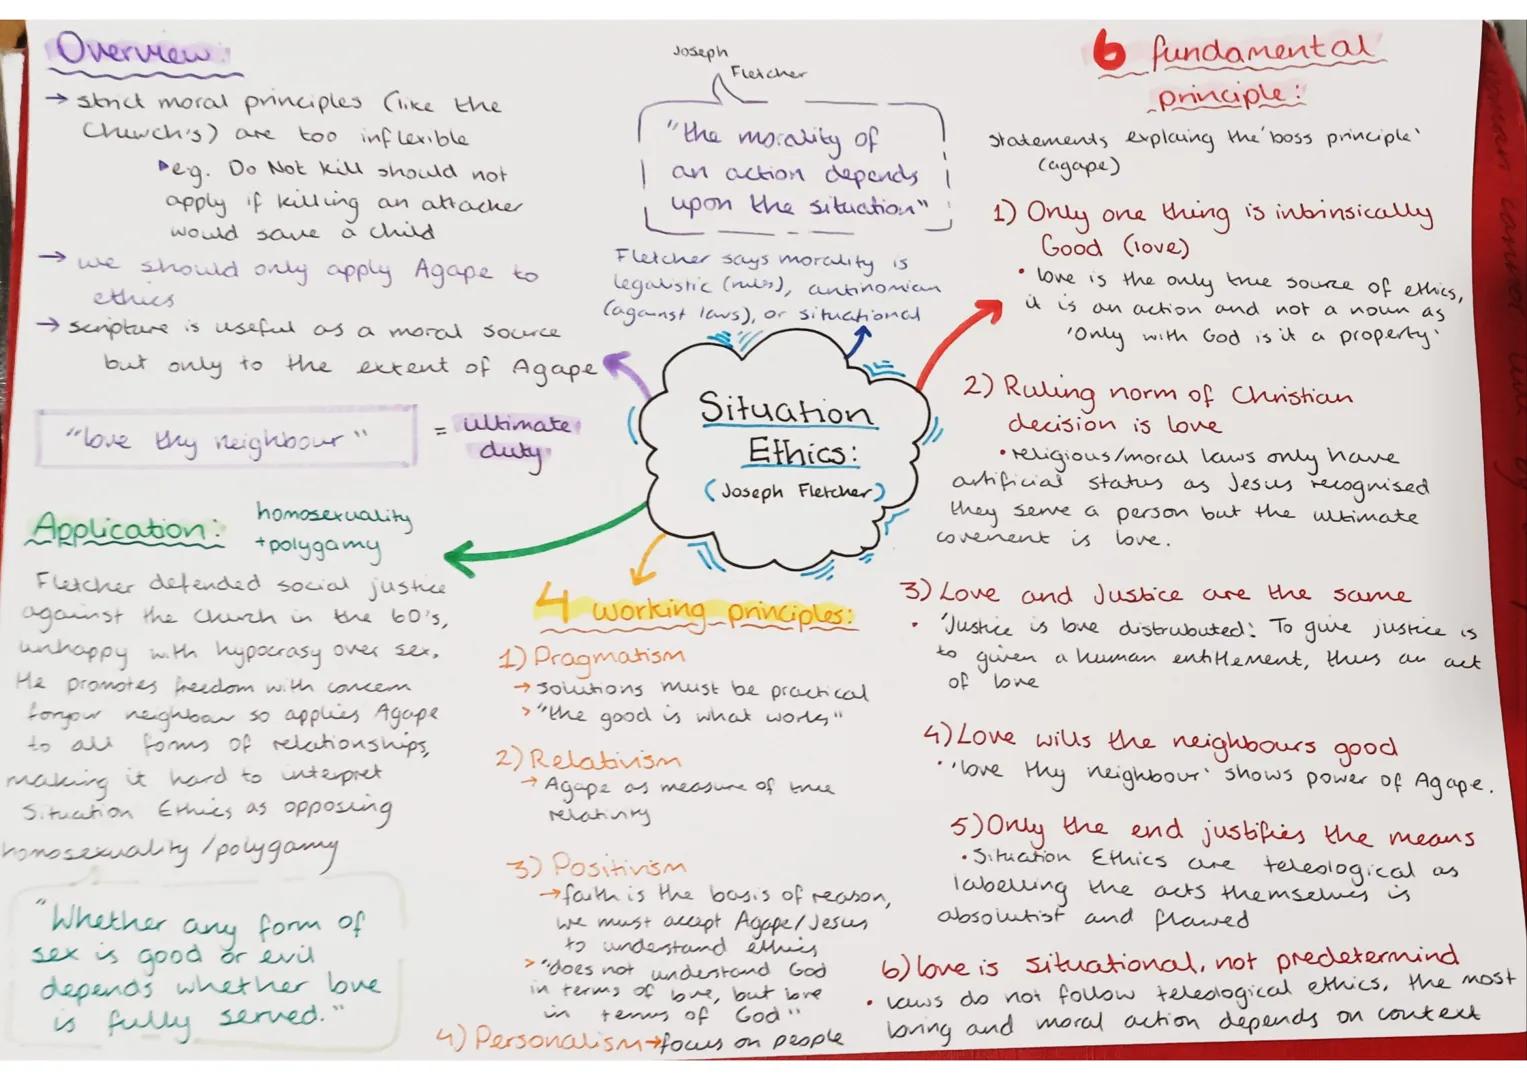 Overview:
→ strict moral principles (like the
Church's) are too inflexible
▸e.g. Do Not kill should not
apply if killing an attacker
would save a child
→ we should only apply Agape to
ethics
→ scripture is useful as a moral source
but only to the extent of Agape
"love thy neighbour"
= ultimate
duty
Joseph
Fletcher
"the morality of
an action depends
upon the situation"
Fletcher says morality is
legalistic (rules), antinomian
(against laws), or situational
Situation
Ethics:
(Joseph Fletcher)
Application:
homosexuality
+polygamy
Fletcher defended social justice
against the Church in the 60's,
unhappy with hypocrasy over sex.
He promotes freedom with concern
for your neighbour so applies Agape
to all forms of relationships,
making it hard to interpret
Situation Ethics as opposing
homosexuality/polygamy
"Whether any form of
sex is good or evil
depends whether love
is fully served."
4 working principles:
1) Pragmatism
→ solutions must be practical
> "the good is what works"
2) Relativism
→ Agape as measure of true
relativity
3) Positivism
→ faith is the basis of reason,
we must accept Agape/Jesus
to understand ethics
> "does not understand God
in terms of love, but love
in terms of God"
4) Personalism→focus on people
6 fundamental
principle:
Statements explaing the 'boss principle'
(agape)
1) Only one thing is intrinsically
Good (love)
• love is the only true source of ethics,
it is an action and not a noun as
'Only with God is it a property'
2) Ruling norm of Christian
decision is love
• religious/moral laws only have
artificial status as Jesus recognised
they serve a person but the ultimate
covenent is love.
3) Love and Justice are the same
• 'Justice is love distrubuted': To give justice is
to given a human entitlement, thus an act
of love
4) Love wills the neighbours good
• 'love thy neighbour' shows power of Agape.
5) Only the end justifies the means
• Situation Ethics are teleological as
labelling the acts themselves is
absolutist and flawed
6) love is situational, not predetermind
• laws do not follow teleological ethics, the most
loving and moral action depends on context